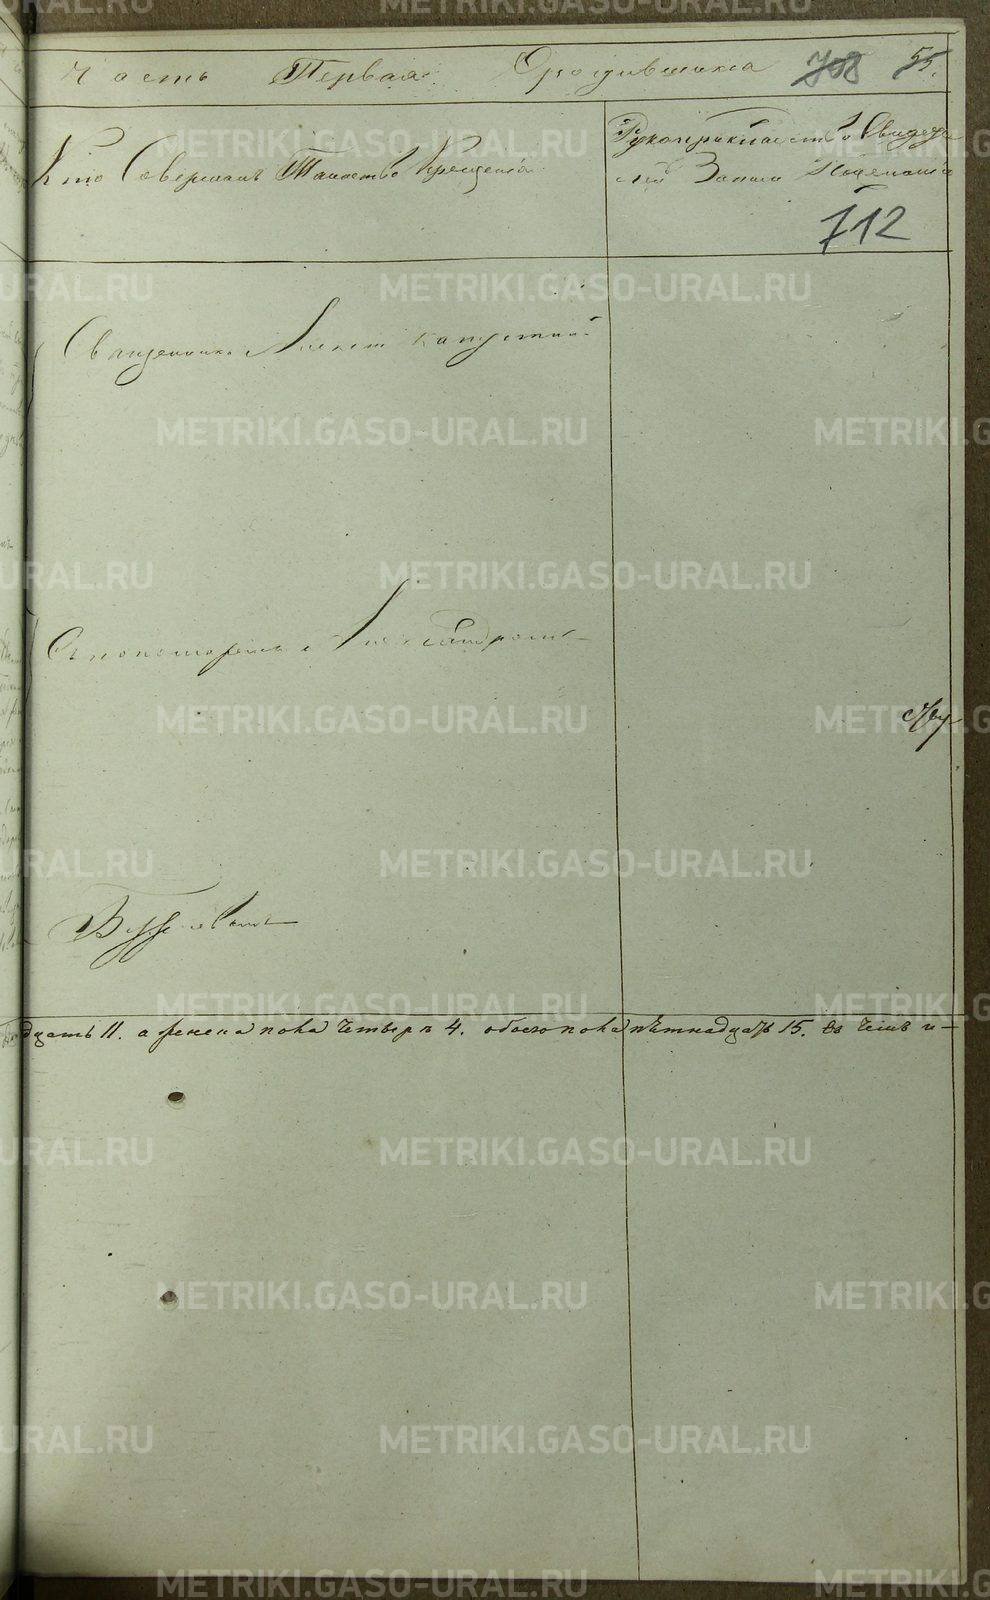 Часть Первая О родившихся 708 55.
Кто Совершалъ Таинство Крещенія
Рукоприкладство Свидете
лей Записи
712
Священникъ Капустинъ
съ пономаремъ Александромъ
дцать 11. а женска пола четыре 4. обоего пола пятнадцать 15. въ чемъ и
METRIKI.GASO-URAL.RU